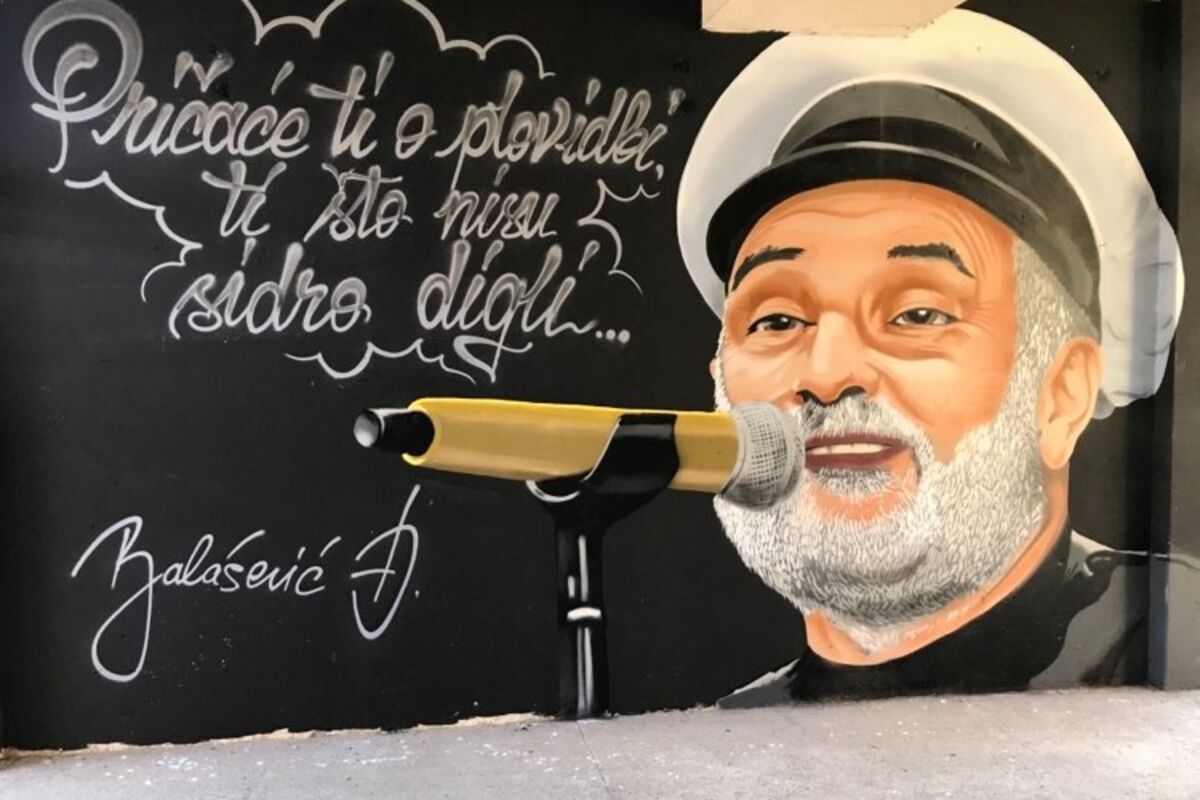 Pričaće ti o plovidbi,
ti što nisu
sidro digli...
Balašević Đ.